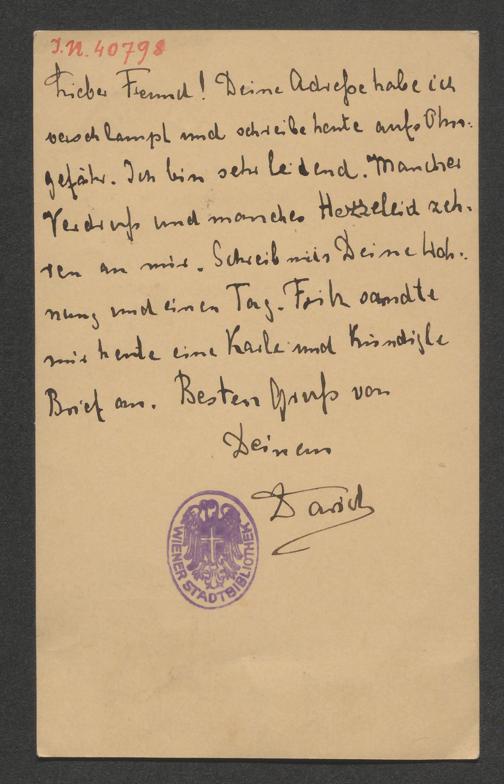 J.N. 40798
Lieber Freund! Deine Adreße habe ich
verschlampt und schreibe heute aufs Ohn-
gefähr. Ich bin sehr leidend. Mancher
Verdruß und manches Herzeleid zeh-
ren an mir. Schreib mir Deine Woh-
nung und einen Tag. Fritz sandte
mir heute eine Karte und kündigte
Brief an. Besten Gruß von
Deinem
WIENER STADTBIBLIOTHEK